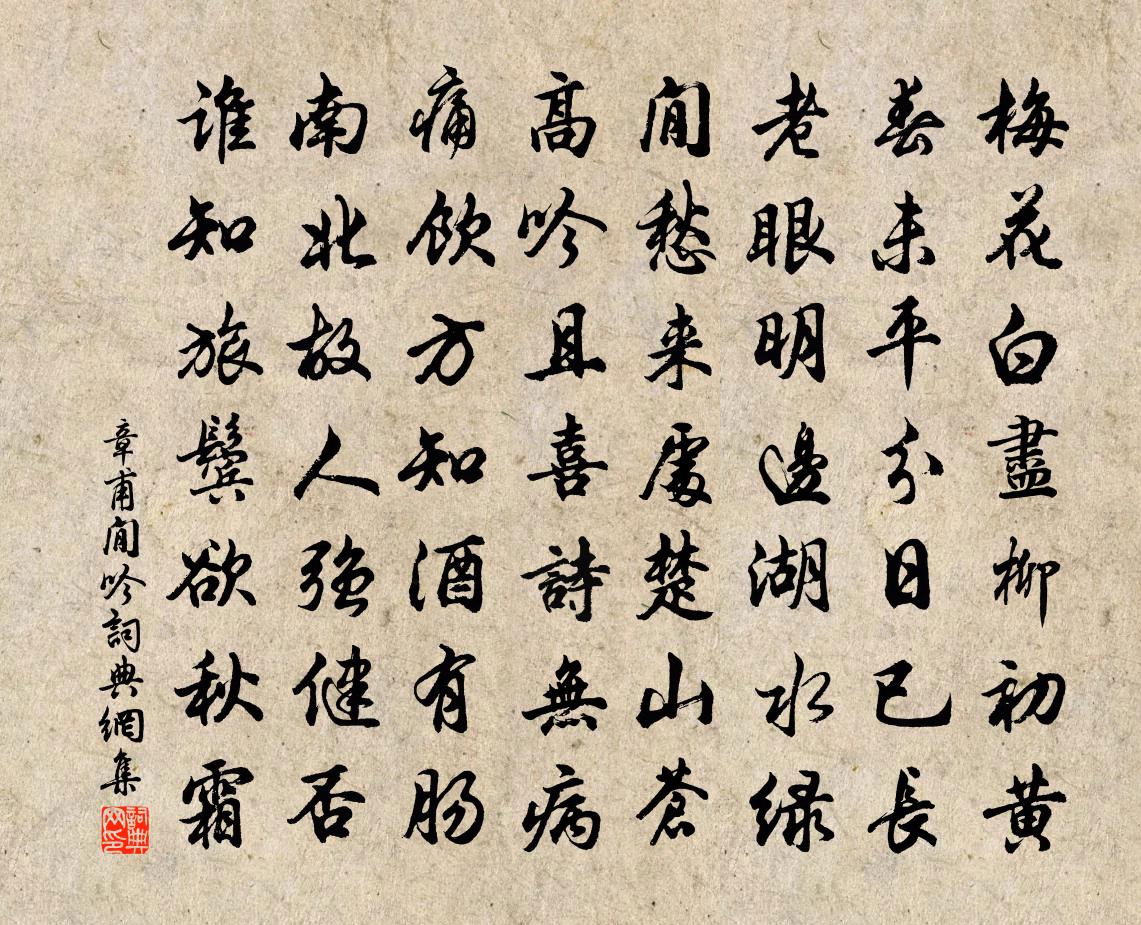 梅花白盡柳初黄
春未平分日已長
老眼明邊湖水緑
閒愁来處楚山蒼
高吟且喜詩無病
痛飲方知酒有腸
南北故人强健否
誰知旅鬢欲秋霜
章甫閒吟詞典網集
詞典網印